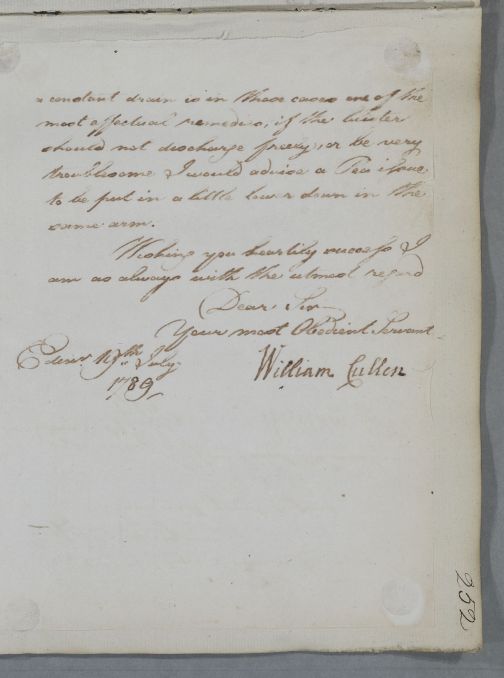 a constant drain is in these cases one of the
most effectual remedies, if the blister
should not discharge freely, or be very
troublesome I would advise a Pea issue
to be put in a little lower down in the
same arm.
Wishing you heartily success I
am as always with the utmost regard
Dear Sir
Your most Obedient Servant
William Cullen
Edinr 19th July
1789
252